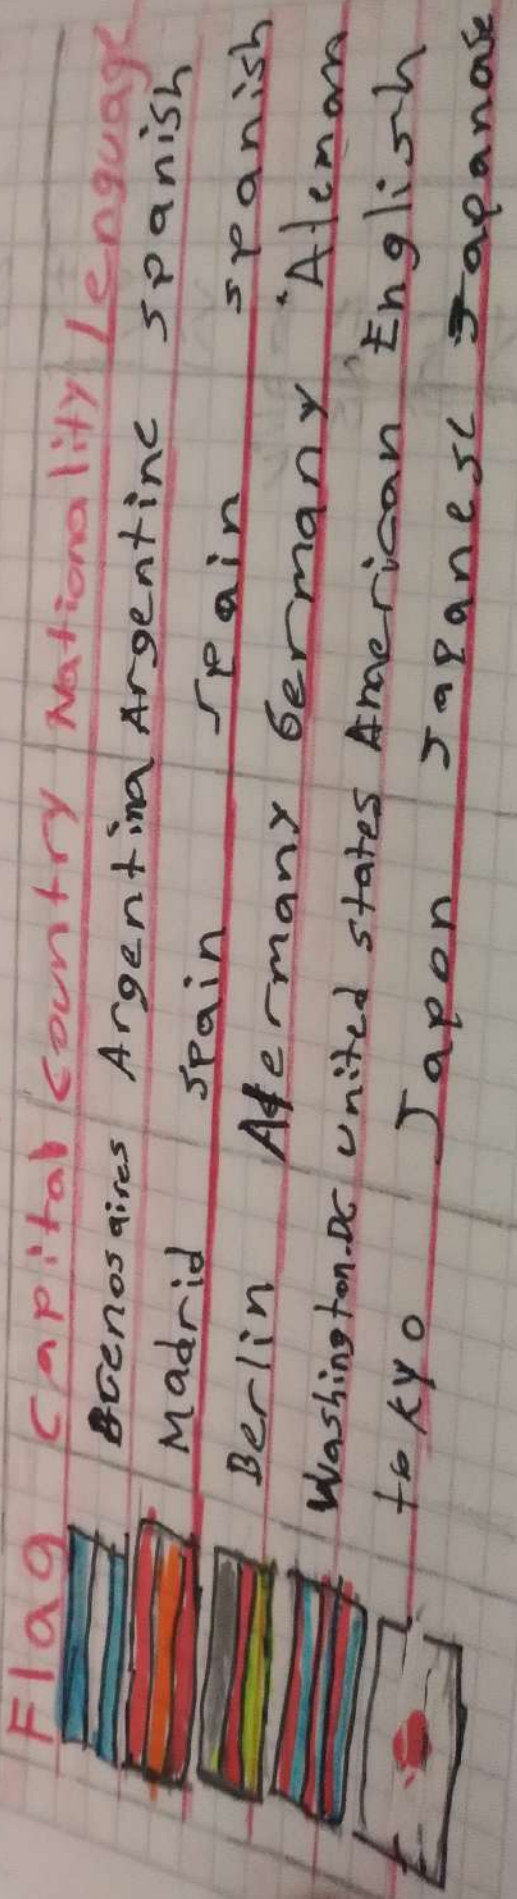 Flag Capital Country Nationality Lenguage
Buenos aires Argentina Argentine Spanish
Madrid Spain Spain Spanish
Berlin Alermany Germany Aleman
Washington.DC United states American English
tokyo Japon Japanese Japanase